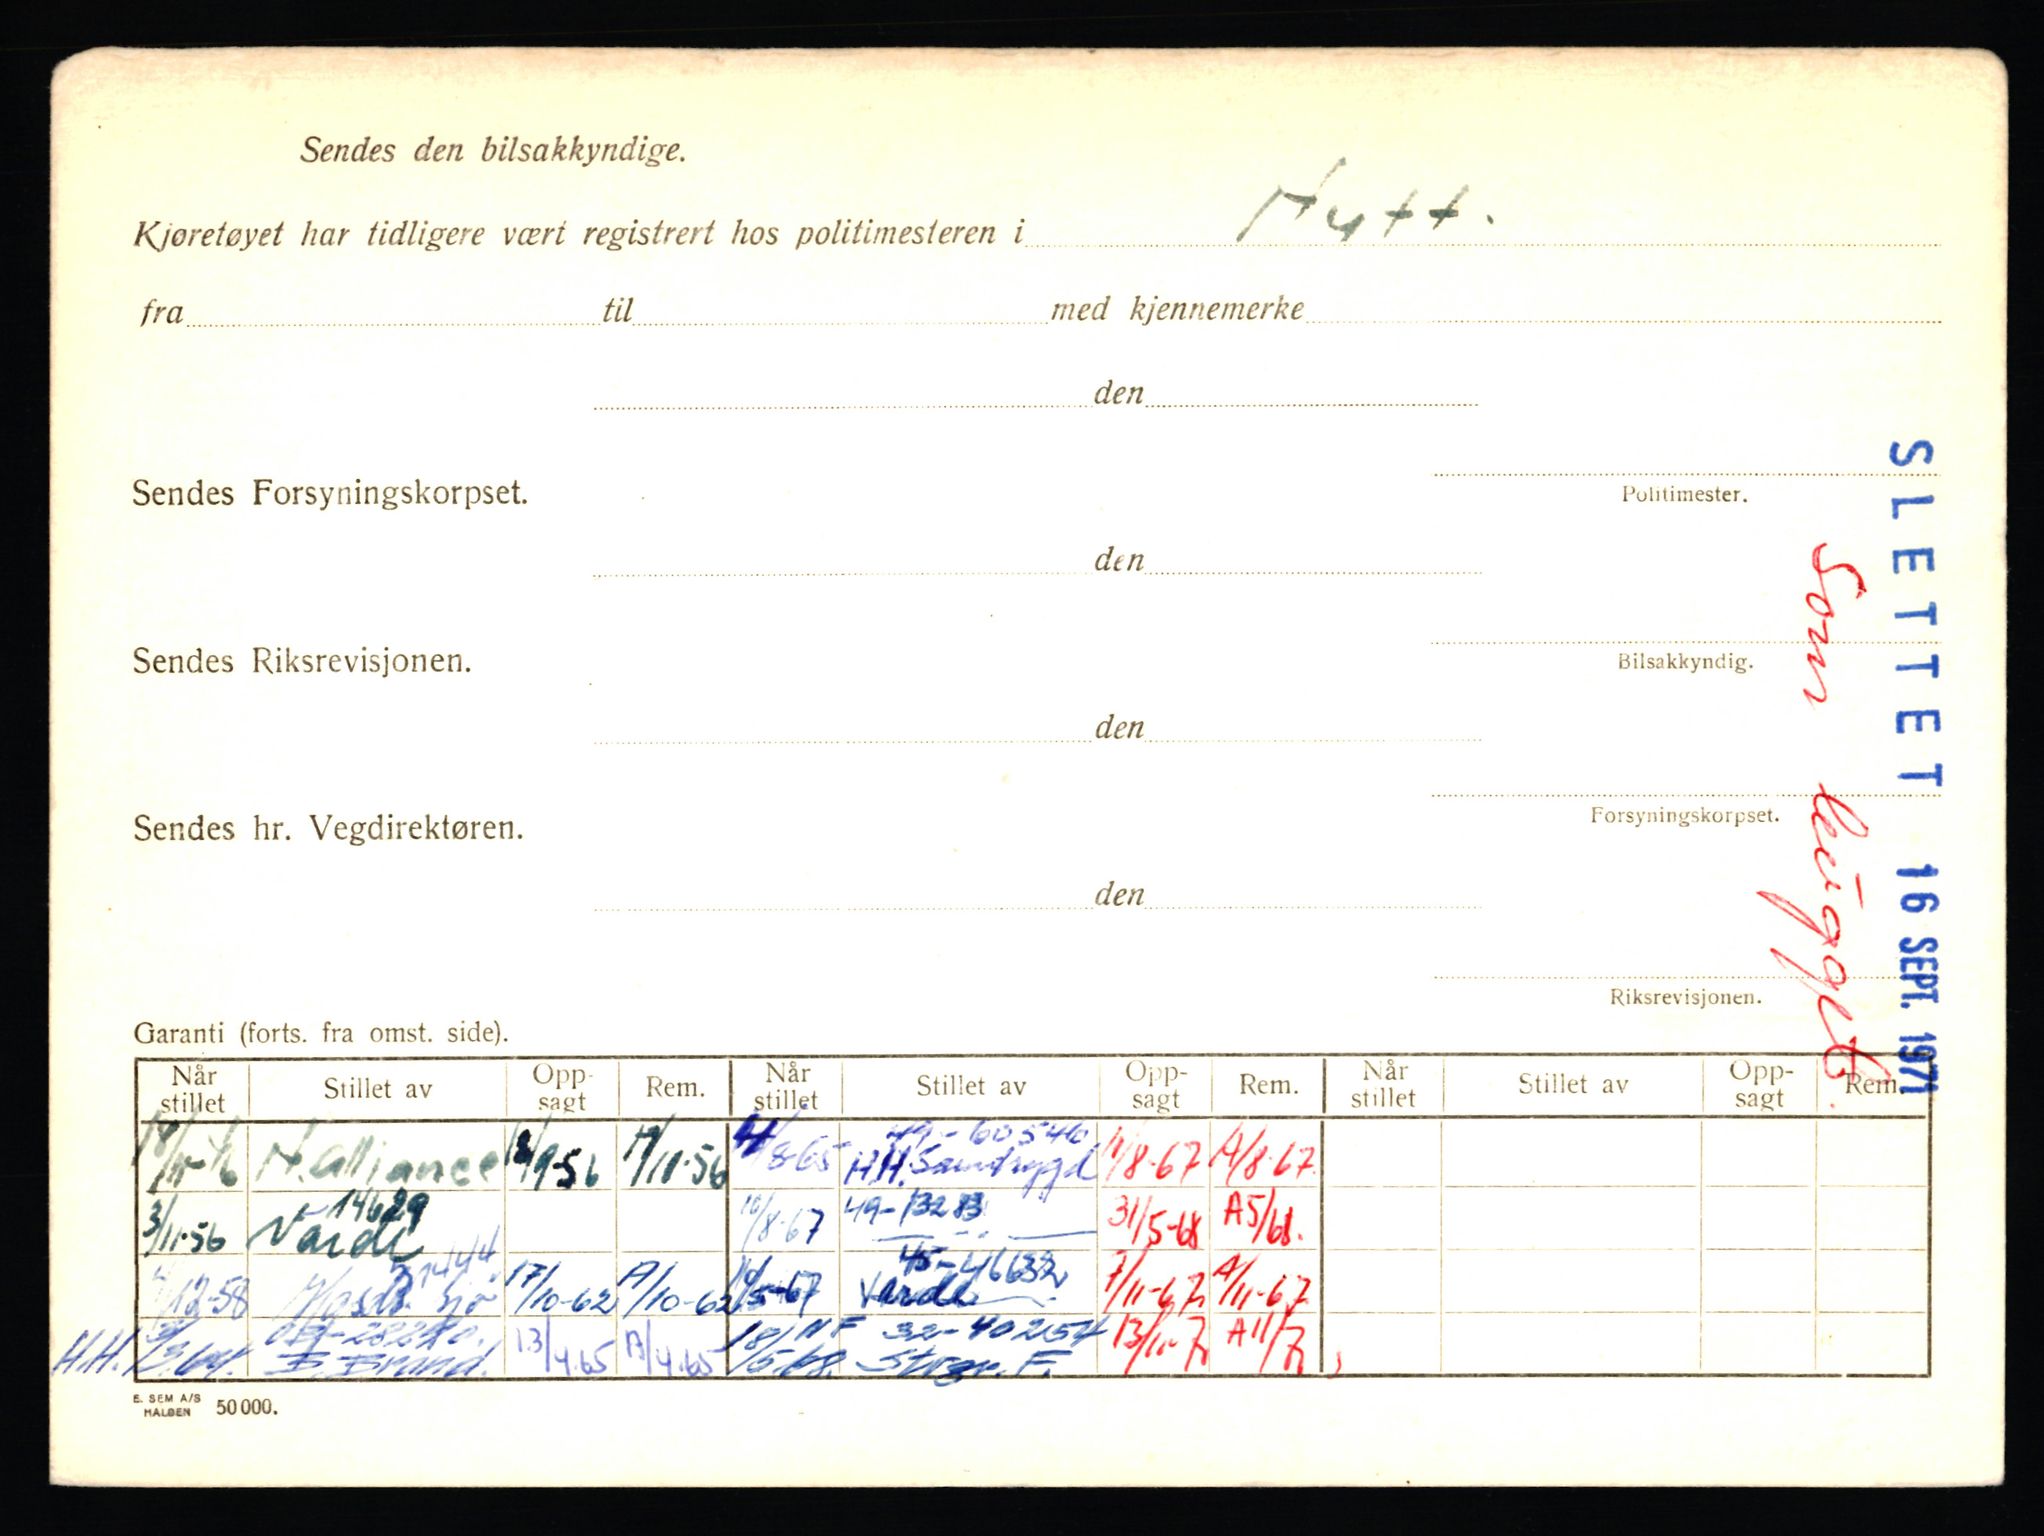 Sendes den bilsakkyndige.
Kjøretøyet har tidligere vært registrert hos politimesteren i Nytt.
fra til med kjennemerke
den
Politimester.
Sendes Forsyningskorpset.
den
Bilsakkyndig.
Sendes Riksrevisjonen.
den
Forsyningskorpset.
Sendes hr. Vegdirektøren.
den
Riksrevisjonen.
SLETTET 16 SEPT. 1971
Som hugget
Garanti (forts. fra omst. side).
Når stillet Stillet av Oppsagt Rem. Når stillet Stillet av Oppsagt Rem. Når stillet Stillet av Oppsagt Rem.
N. Alliance 9-56 11-56 8-65 49-60546 H.H. Samtrygd 11/8-67 A/8-67
3/11-56 14629 Varde 10/8-67 49-13283 31/5-68 A5/68.
12-58 17/10-62 A/10-62 5-67 45-46632 Varde 7/11-67 A/11-67
H.H. B. Brand. 13/4.65 A/4.65 18/5.68. NF 32-40254 Storbr. F.
E. SEM A/S
HALDEN 50000.